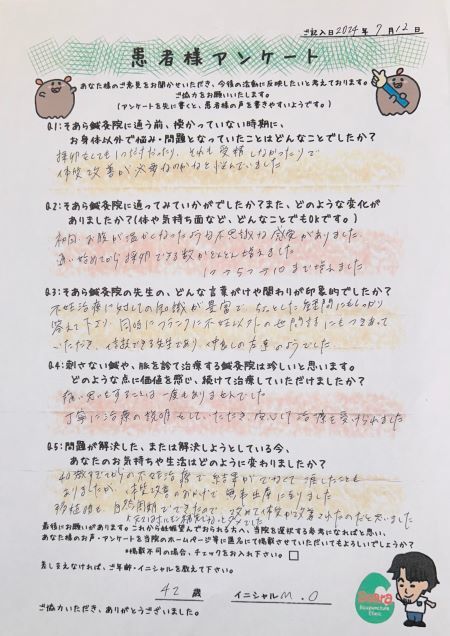 ご記入日2024年7月12日
患者様アンケート
あなた様のご意見をお聞かせいただき、今後の活動に反映したいと考えております。
ご協力をお願いいたします。
(アンケートを先に書くと、患者様の声を書きやすいようです。)
Q.1:そあら鍼灸院に通う前、授かっていない時期に、
お身体以外で悩み・問題となっていたことはどんなことでしたか?
採卵をしても1つだけだったり、それも受精しなかったりで
体質改善が必要なのかなと悩んでいました
Q.2:そあら鍼灸院に通ってみていかがでしたか?また、どのような変化が
ありましたか?(体や気持ち面など、どんなことでもOKです。)
初回、お腹が温かくなったような不思議な感覚がありました。
通い始めてから採卵できる数がどんどん増えました
1つ→5つ→10まで増えました
Q.3:そあら鍼灸院の先生の、どんな言葉がけや関わりが印象的でしたか?
不妊治療に対しての知識が豊富で、ちょっとした疑問にもしっかり
答えて下さり、同時にフランクに不妊以外の世間話にもつきあって
いただき、信頼できる先生であり、仲良しの友達のようでした
Q.4:刺さない鍼や、脈を診て治療する鍼灸院は珍しいと思います。
どのような点に価値を感じ、続けて治療していただけましたか?
痛い思いをすることは一度もありませんでした
丁寧に治療の説明をしていただき、安心して治療を受けられました
Q.5:問題が解決した、または解決しようとしている今、
あなたのお気持ちや生活はどのように変わりましたか?
40歳すぎてからの不妊治療で結果がでなくて涙したことも
ありましたが、体質改善のおかげで無事出産になりました
移植時も自然周期でできたので、改めて体質が改善されたのだと思いました
最後にお願いがあります。これから妊娠望んでおられる方へ、当院を選択する参考になればと思い、
あなた様のお声・アンケートを当院のホームページ等に匿名にて掲載させていただいてもよろしいでしょうか?
*掲載不可の場合、チェックをお入れ下さい。□
差しさえなければ、ご年齢・イニシャルを教えて下さい。
42歳 イニシャルM.O
ご協力いただき、ありがとうございました。
Soara
Acupuncture
Clinic